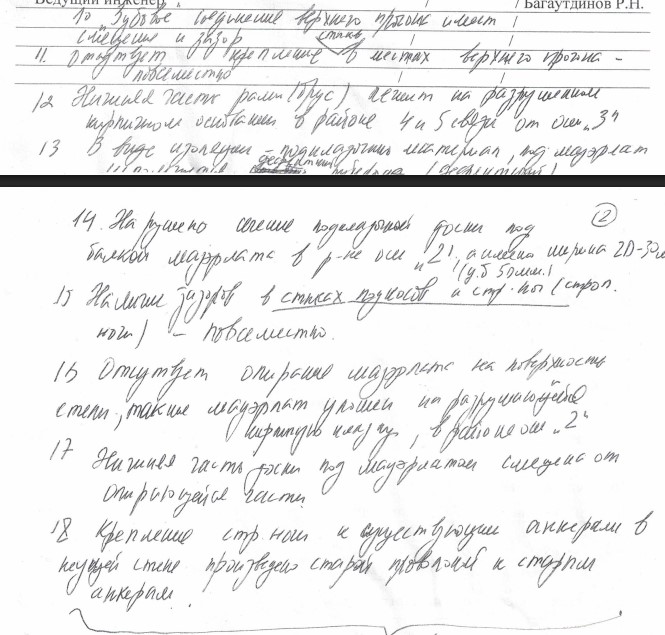 Ведущий инженер / / Багаутдинов Р.Н.
10 Зубовое соединение верхнего прогона имеет
смещение и зазор
стыки
11. Отсутствует крепление в местах верхнего прогона –
повсеместно
12 Нижняя часть рамы (брус), лежит на разрушенном
кирпичном основании в районе 4 и 5 связи от оси "З"
13 В виде изоляции – подкладочный материал, под мауэрлат
(2)
14. Нарушено сечение подкладочной доски под
балкой мауэрлата в р-не оси "2", а именно ширина 20-30
(д.б 50мм.)
15 Наличие зазоров в стыках подкосов и стр. ног (строп.
ноги) – повсеместно.
16 Отсутствует опирание мауэрлата на поверхность
стены, также мауэрлат уложен на разрушающуюся
кирпичную кладку, в районе оси "2"
17 Нижняя часть доски под мауэрлатом смещена от
опирающейся части.
18 Крепление стр. ноги к существующим анкерам в
несущей стене произведено старой проволокой к старым
анкерам